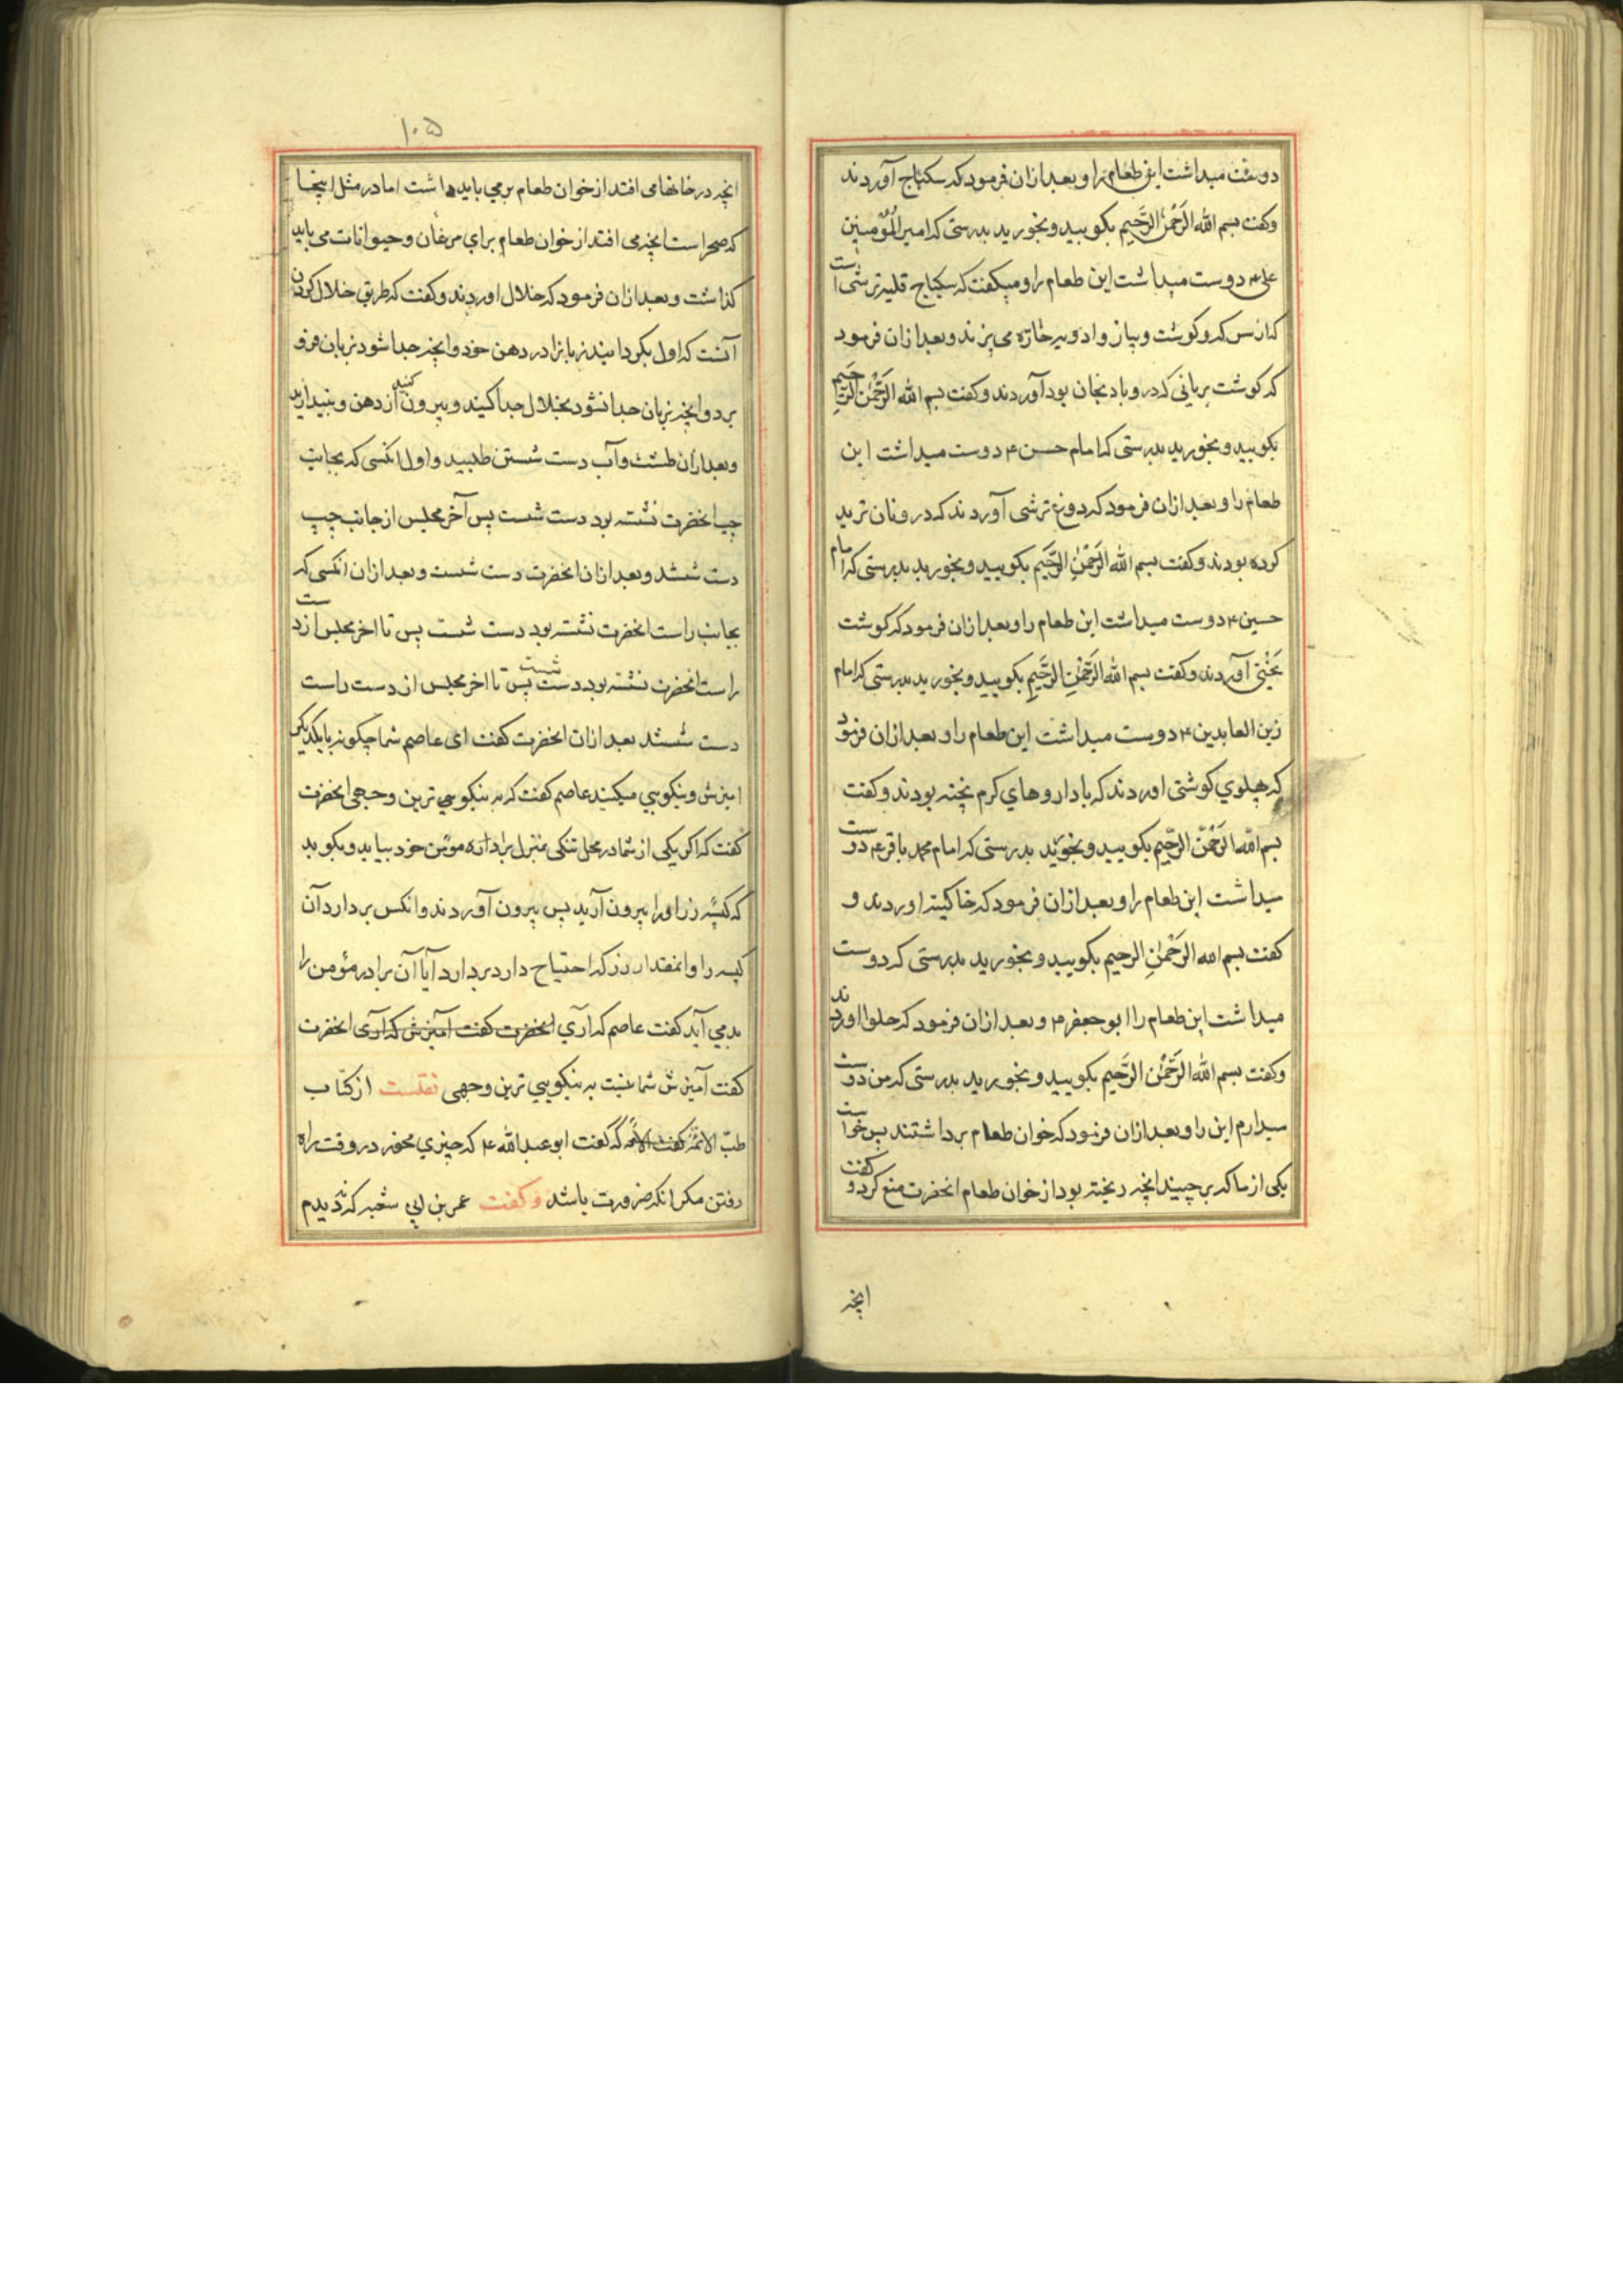 دوست میداشت این طعام را و بعد ازان فرمود که سکباج آوردند
وکفت بسم الله الرَّحْمٰنِ الرَّحیم بکویید و بخورید بدرستی که امیر المُؤمنین
علی ۴ دوست میداشت این طعام را و میکفت که سکباج قلیه ترشی است
که از سرکه و کوشت و پیاز و ادویه حاره می پزند و بعد ازان فرمود
که کوشت بریانی که درو بادنجان بود آوردند وکفت بسم الله الرَّحْمٰنِ الرَّحیم
بکویید و بخورید بدرستی که امام حسن ۴ دوست میداشت این
طعام را و بعد ازان فرمود که دوغ ترشی آوردند که درو نان ترید
کرده بودند وکفت بسم الله الرَّحْمٰنِ الرَّحیم بکویید و بخورید بدرستی که امام
حسین ۴ دوست میداشت این طعام را و بعد ازان فرمود که کوشت
یَخْنی آوردند وکفت بسم الله الرَّحْمٰنِ الرَّحیمِ بکویید و بخورید بدرستی که امام
زین العابدین ۴ دوست میداشت این طعام را و بعد ازان فرمود
که پهلوی کوشتی اوردند که با داروهای کرم پخته بودند وکفت
بسم الله الرَّحْمٰنِ الرَّحیم بکویید و بخورید بدرستی که امام محمد باقر ۴ دوست
میداشت این طعام را و بعد ازان فرمود که خاکینه اوردند و
کفت بسم الله الرَّحْمٰنِ الرحیم بکویید و بخورید بدرستی که دوست
میداشت این طعام را ابو جعفر ۴ و بعد ازان فرمود که حلوا اوردند
وکفت بسم الله الرَّحْمٰنِ الرَّحیم بکویید و بخورید بدرستی که من دوست
میدارم این را و بعد ازان فرمود که خوان طعام برداشتند پس خواست
یکی از ما که برچیند انچه ریخته بود از خوان طعام انحضرت منع کرد و کفت
انچه
۱۰۵
انچه در خانها می افتد از خوان طعام برمی باید داشت اما در مثل اینجا
که صحراست انچه می افتد از خوان طعام برای مرغان و حیوانات می باید
کذاشت و بعد ازان فرمود که خلال اوردند وکفت که طریق خلال کردن
آنست که اول بکردانید زبانرا در دهن خود و انچه جدا شود بزبان فرو
برد و انچه بزبان جدا نشود بخلال جدا کنید و بیرون کنید از دهن و بیندازید
و بعد ازان طشت و آب دست شستن طلبید و اول انکسی که بجانب
چپ انحضرت نشسته بود دست شست پس آخر مجلس از جانب چپ
دست شستند و بعد ازان انحضرت دست شست و بعد ازان انکسی که
بجانب راست انحضرت نشسته بود دست شست پس تا اخر مجلس از دست
راست انحضرت نشسته بود دست شست پس تا اخر مجلس از دست راست
دست شستند بعد ازان انحضرت کفت ای عاصم شما چکونه با یکدیکر
امیزش و نیکویی میکنید عاصم کفت که به نیکویی ترین وجهی انحضرت
کفت که اکر یکی از شما در محل تنکی بمنزل برادر مؤمن خود بیاید و بکوید
که کیسه زر او را بیرون آرید پس بیرون آوردند و انکس بردارد آن
کیسه را و انمقدار زر که احتیاج دارد بردارد آیا آن برادر مؤمن را
بد می آید کفت عاصم که اری انحضرت کفت امیزش که اری انحضرت
کفت آمیزش شما نیست به نیکویی ترین وجهی نقلست از کتاب
طبّ الائمّه که کفت ابو عبد الله ۴ که چیزی مخور در وقت راه
رفتن مکر انکه ضرورت باشد وکفت عمر بن ابی شعبه که ندیدم